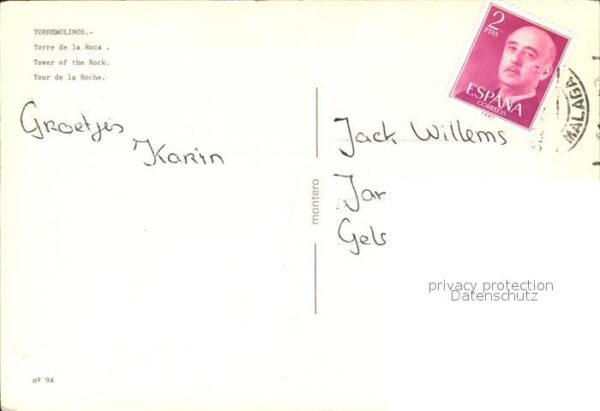 TORREMOLINOS.-
Torre de la Roca .
Tower of the Rock.
Tour de la Roche.
Groetjes
Karin
nº 94
montero
2
PTAS
ESPAÑA
CORREOS
MALAGA
Jack Willems
Jar
Gels
privacy protection
Datenschutz